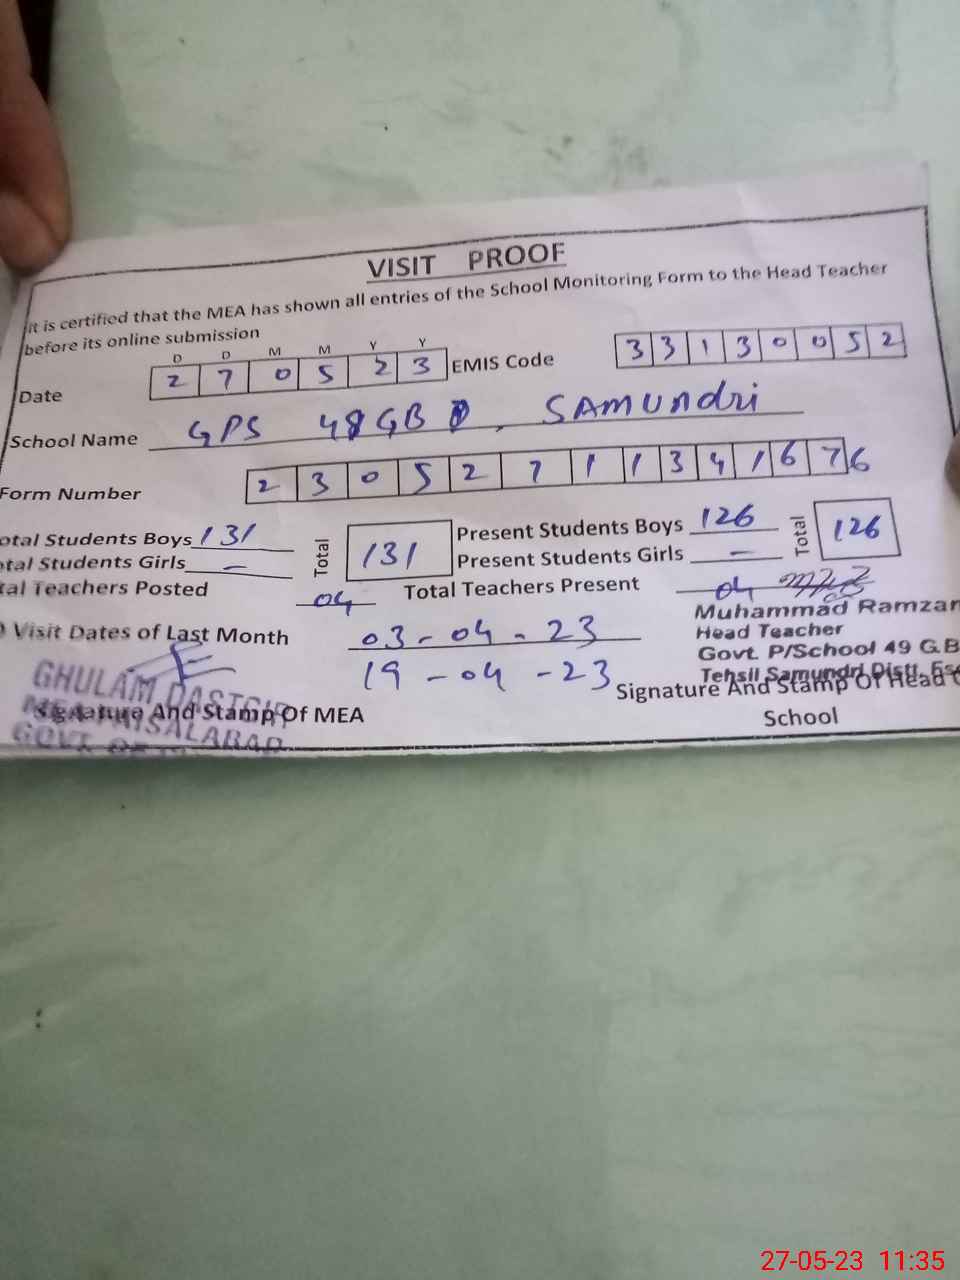 VISIT PROOF
It is certified that the MEA has shown all entries of the School Monitoring Form to the Head Teacher
before its online submission
D D M M Y Y
Date 2 7 0 5 2 3 EMIS Code 3 3 1 3 0 0 5 2
School Name GPS 48 GB, SAMUNDRI
Form Number 2 3 0 5 2 7 1 1 3 4 1 6 7 6
otal Students Boys 131 Total 131 Present Students Boys 126 Total 126
tal Students Girls – Present Students Girls –
tal Teachers Posted 04 Total Teachers Present 04
Muhammad Ramzan
Visit Dates of Last Month 03-04-23 Head Teacher
Govt. P/School 49 G.B
19-04-23 Tehsil Samundri Distt.
GHULAM DASTGIR
Signature And Stamp Of MEA Signature And Stamp Of Head
FAISALABAD School
GOVT
27-05-23 11:35